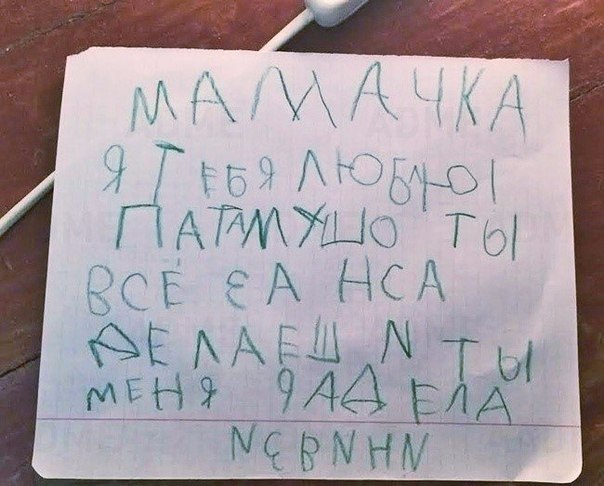 МАМАЧКА
Я ТЕБЯ ЛЮБЛЮ
ПАТАМУШО ТЫ
ВСЁ ЕА НСА
ДЕЛАЕШ И ТЫ
МЕНЯ ЯАДЕЛА
ИЗВИНИ